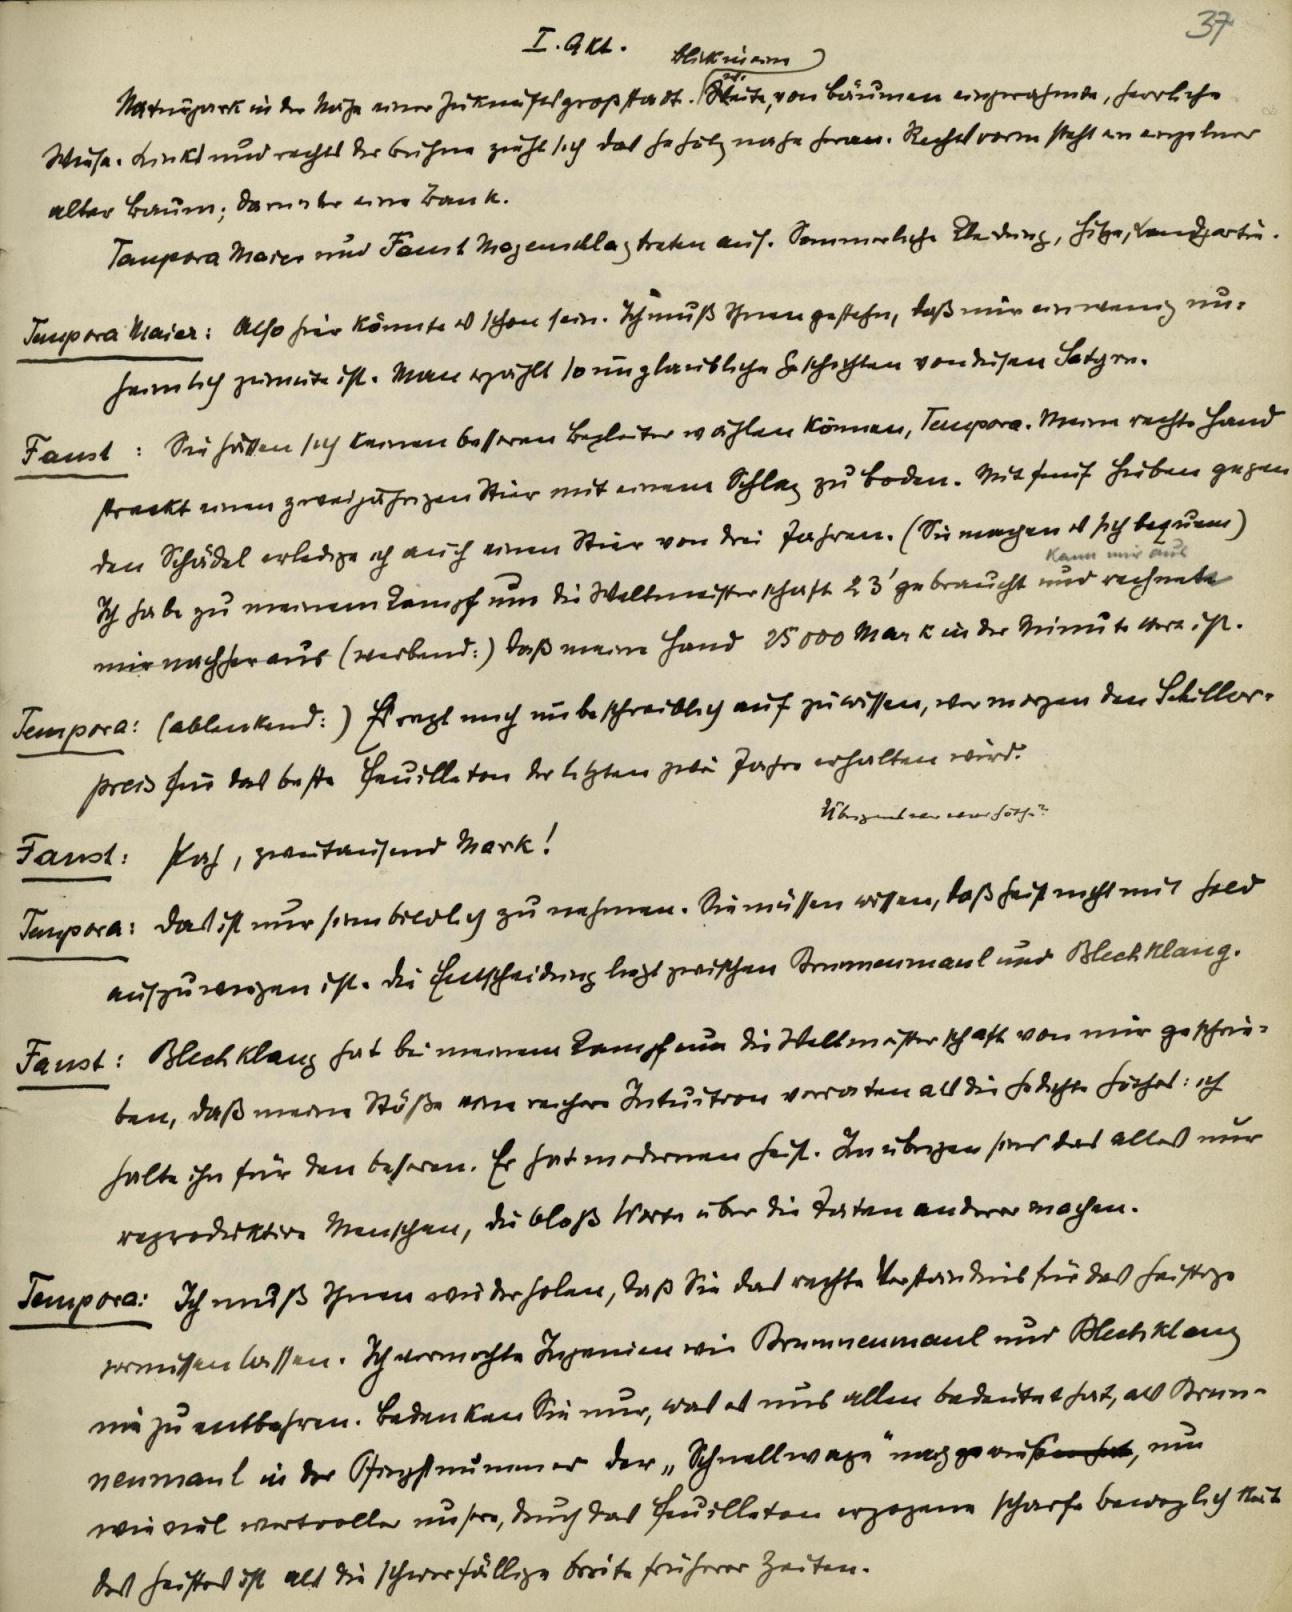 37
I. Akt.
Blick in eine
Naturpark in der Nähe einer Zukunftsgroßstadt. Weite, von Bäumen eingerahmte, herrliche
Wiese. Links und rechts der Bühne zieht sich das Gehölz nahe heran. Rechts vorn steht ein einzelner
alter Baum; darunter eine Bank.
Tempora Maier und Faust Magenschlag treten auf. Sommerliche Kleidung, Hitze, Landpartie.
Tempora Maier: Also hier könnte es schon sein. Ich muß Ihnen gestehn, daß mir ein wenig un-
heimlich zumute ist. Man erzählt so unglaubliche Geschichten von diesen Satyrn.
Faust: Sie hätten sich keinen besseren Begleiter wählen können, Tempora. Meine rechte Hand
streckt einen zweijährigen Stier mit einem Schlag zu Boden. Mit fünf Hieben gegen
den Schädel erledige ich auch einen Stier von drei Jahren. (Sie machen es sich bequem)
kann mir aus
Ich habe zu meinem Kampf um die Weltmeisterschaft 23' gebraucht und rechnete
mir nachher aus (werbend:) daß meine Hand 25000 Mark in der Minute wert ist.
Tempora: (ablenkend:) Es regt mich unbeschreiblich auf zu wissen, wer morgen den Schiller-
preis für das beste Feuilleton der letzten zwei Jahre erhalten wird.
Übrigens wer war
Faust: Pah, zweitausend Mark!
Tempora: Das ist nur sinnbildlich zu nehmen. Sie müssen wissen, daß Geist nicht mit Geld
aufzuwiegen ist. Die Entscheidung liegt zwischen Brunnenmaul und Blechklang.
Faust: Blechklang hat bei meinem Kampf um die Weltmeisterschaft von mir geschrie-
ben, daß meine Stöße eine reichere Intuition verraten als die Gedichte Göthes: ich
halte ihn für den besseren. Er hat modernen Geist. Im übrigen sind das alles nur
reproduktive Menschen, die bloß Worte über die Taten anderer machen.
Tempora: Ich muß Ihnen wiederholen, daß Sie das rechte Verständnis für das Geistige
vermissen lassen. Ich vermöchte Ingenien wie Brunnenmaul und Blechklang
nie zu entbehren. Bedenken Sie nur, was es uns allen bedeutet hat, als Brun-
nenmaul in der Pfingstnummer der „Schnellwage" nachgewiesen hat, um
wieviel wertvoller unsere, durch das Feuilleton erzogene scharfe Beweglichkeit
des Geistes ist als die schwerfällige Breite früherer Zeiten.